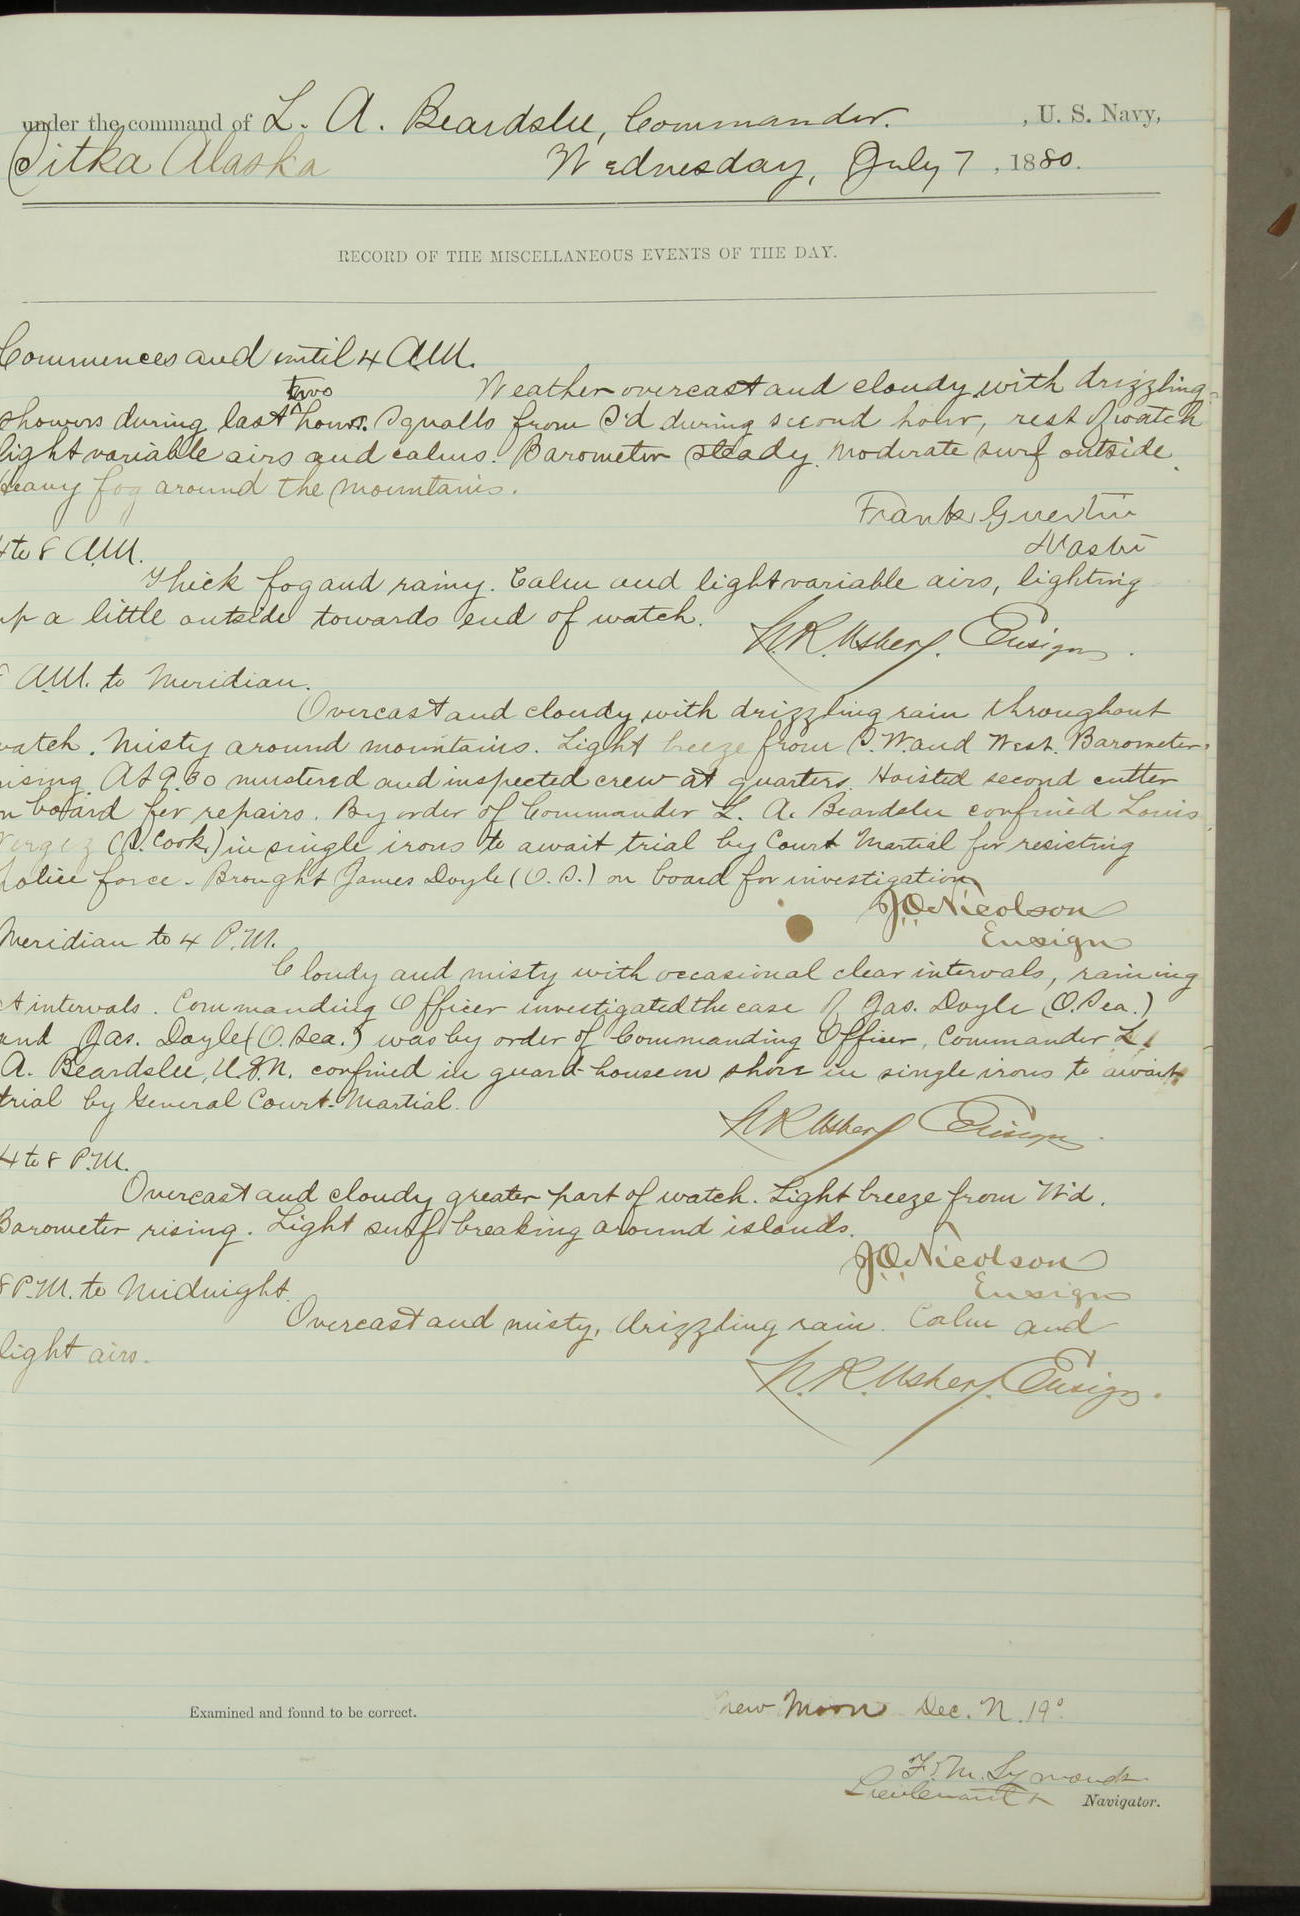 under the command of L. A. Beardslee, Commander. , U. S. Navy,
Sitka Alaska Wednesday, July 7 , 1880.
RECORD OF THE MISCELLANEOUS EVENTS OF THE DAY.
Commences and until 4 A.M.
Weather overcast and cloudy with drizzling
two
showers during last ^ hours. Squalls from S'd during second hour, rest of watch
light variable airs and calms. Barometer steady. Moderate surf outside.
Heavy fog around the mountains.
Frank Guertin
Master
4 to 8 A.M.
Thick fog and rainy. Calm and light variable airs, lighting
up a little outside towards end of watch.
N. R. Usher, Ensign.
8 A.M. to Meridian.
Overcast and cloudy with drizzling rain throughout
watch. Misty around mountains. Light breeze from S.W. and West. Barometer
rising. At 9.30 mustered and inspected crew at quarters. Hoisted second cutter
on board for repairs. By order of Commander L. A. Beardslee confined Louis
(S. Cook,) in single irons to await trial by Court Martial for resisting
police force. Brought James Doyle (O.S.) on board for investigation.
J O Nicolson
Ensign
Meridian to 4 P.M.
Cloudy and misty with occasional clear intervals, raining
at intervals. Commanding Officer investigated the case of Jas. Doyle (O. Sea.)
and Jas. Doyle (O. Sea.) was by order of Commanding Officer, Commander L.
A. Beardslee, U.S.N. confined in guard-house on shore in single irons to await
trial by General Court-Martial.
N R Usher Ensign.
4 to 8 P.M.
Overcast and cloudy greater part of watch. Light breeze from W'd.
Barometer rising. Light surf breaking around islands.
J O Nicolson
Ensign
8 P.M. to Midnight.
Overcast and misty, drizzling rain. Calm and
light airs.
N. R. Usher, Ensign.
Examined and found to be correct.
New Moon Dec. N. 19°
F. M. Symonds
Lieutenant & Navigator.